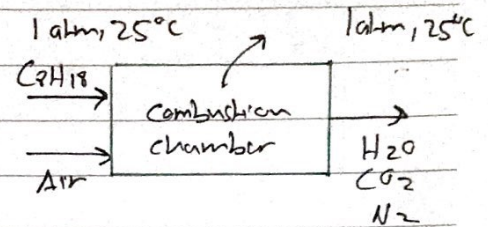 1 atm, 25°C
1 atm, 25°C
C8H18
combustion
chamber
Air
H2O
CO2
N2